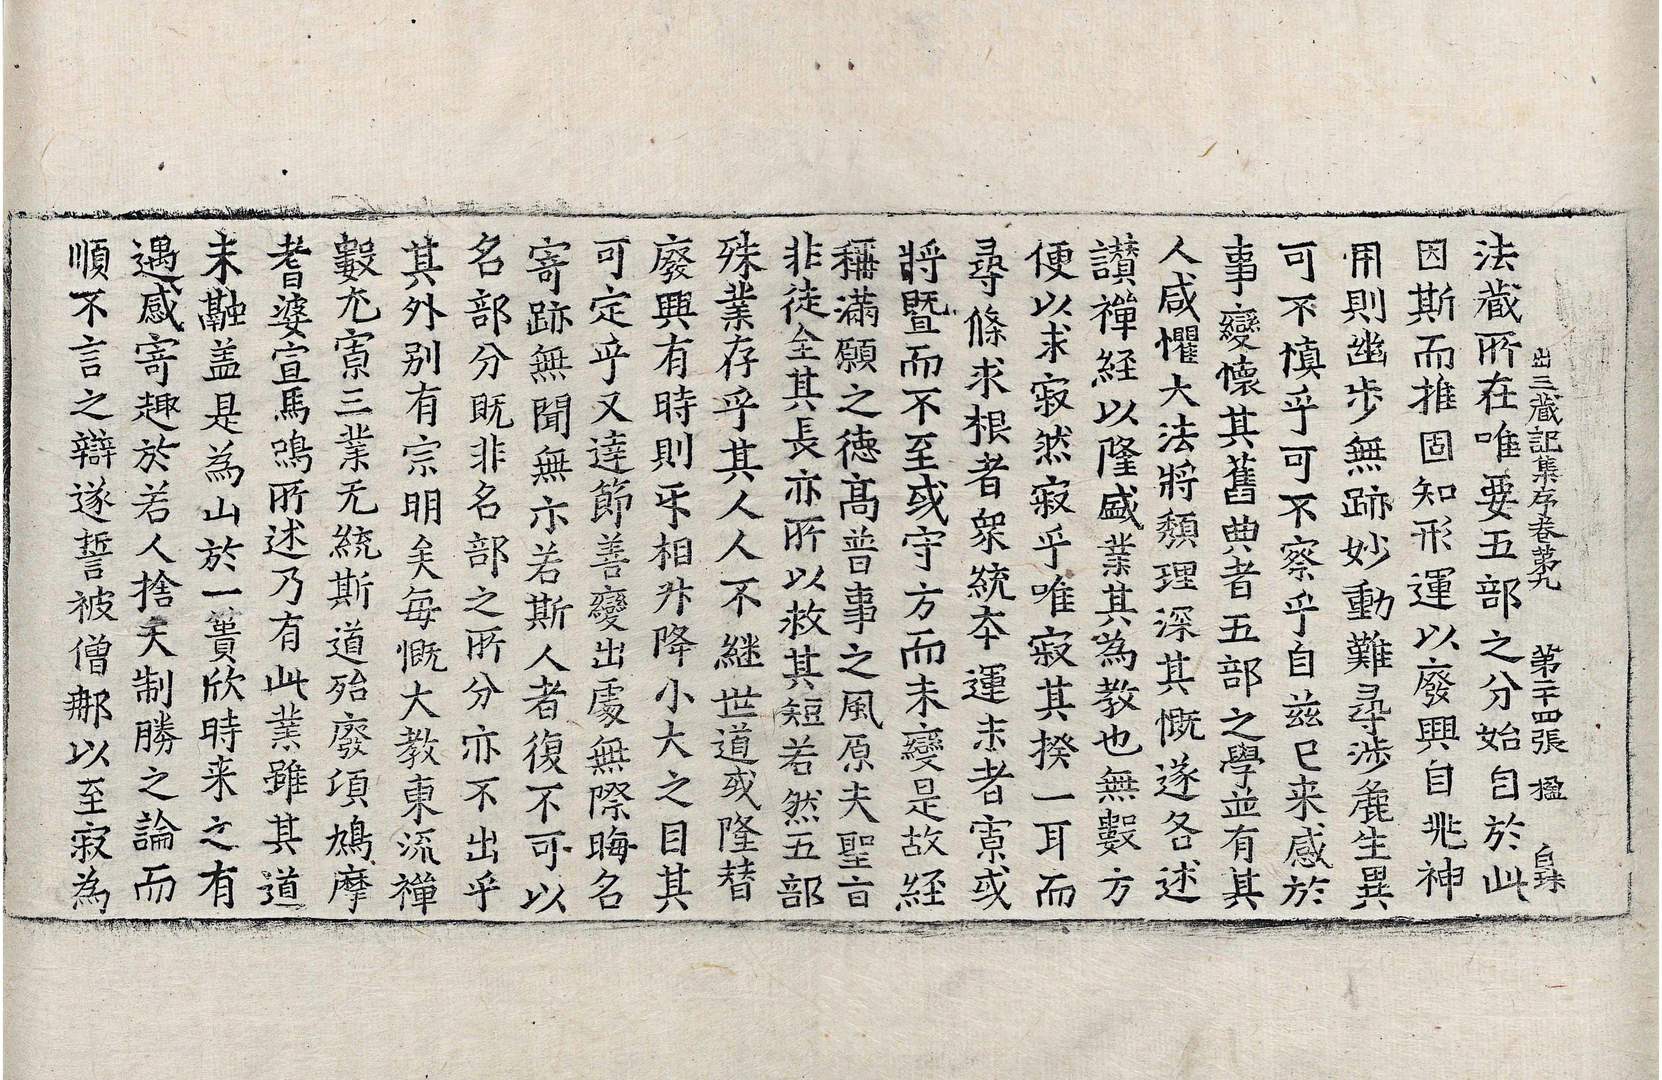 出三藏記集序卷第九 第二十四張 楹 自珠
法藏所在唯要五部之分始自於此
因斯而推固知形運以廢興自兆神
用則幽步無跡妙動難尋涉麁生異
可不慎乎可不察乎自兹已来感於
事變懷其舊典者五部之學並有其
人咸懼大法將頹理深其慨遂各述
讃禪經以隆盛業其為教也無數方
便以求寂然寂乎唯寂其揆一耳而
尋條求根者衆統本運末者寡或
將暨而不至或守方而未變是故經
稱滿願之德高普事之風原夫聖旨
非徒全其長亦所以救其短若然五部
殊業存乎其人人不継世道或隆替
廢興有時則㸦相升降小大之目其
可定乎又達節善變出處無際晦名
寄跡無聞無示若斯人者復不可以
名部分既非名部之所分亦不出乎
其外别有宗明矣每慨大教東流禪
數尤寡三業无統斯道殆廢頃鳩摩
耆婆宣馬鳴所述乃有此業雖其道
未融盖是為山於一簣欣時来之有
遇感寄趣於若人捨夫制勝之論而
順不言之辯遂誓被僧那以至寂為